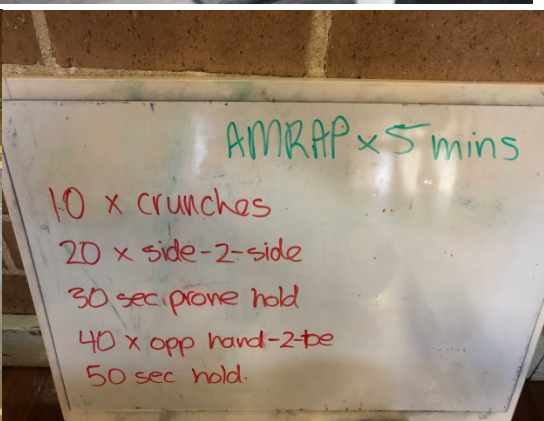 AMRAP x 5 mins
10 x crunches
20 x side-2-side
30 sec prone hold
40 x opp hand-2-toe
50 sec hold.